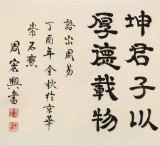 坤君子以
厚德載物
語出周易
丁酉年金秋於京華
周宏興書